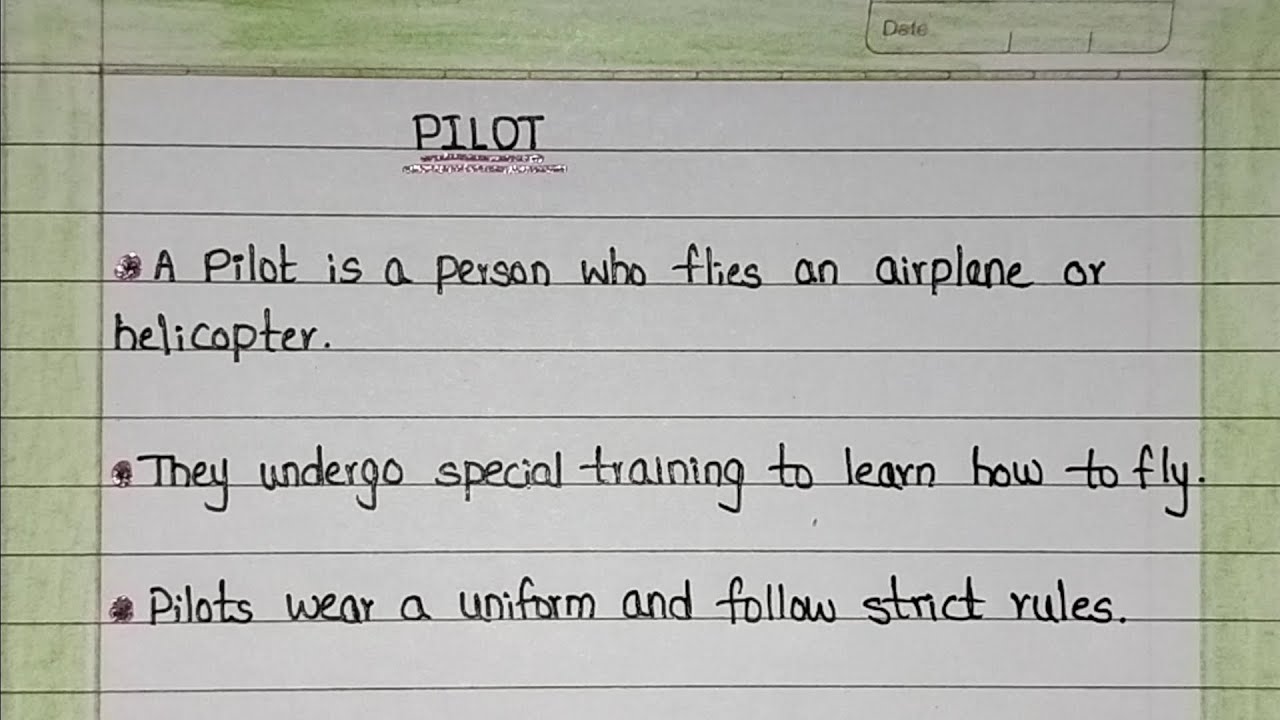 Date
PILOT
• A Pilot is a person who flies an airplane or
helicopter.
• They undergo special training to learn how to fly.
• Pilots wear a uniform and follow strict rules.